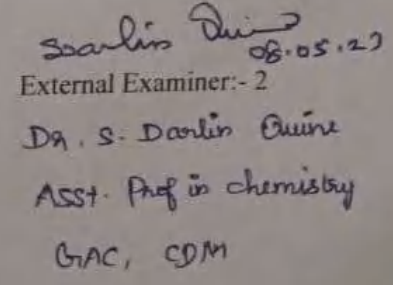 SDarlin Quine
08.05.23
External Examiner:- 2
Dr. S. Darlin Quine
Asst. Prof in chemistry
GAC, CDM